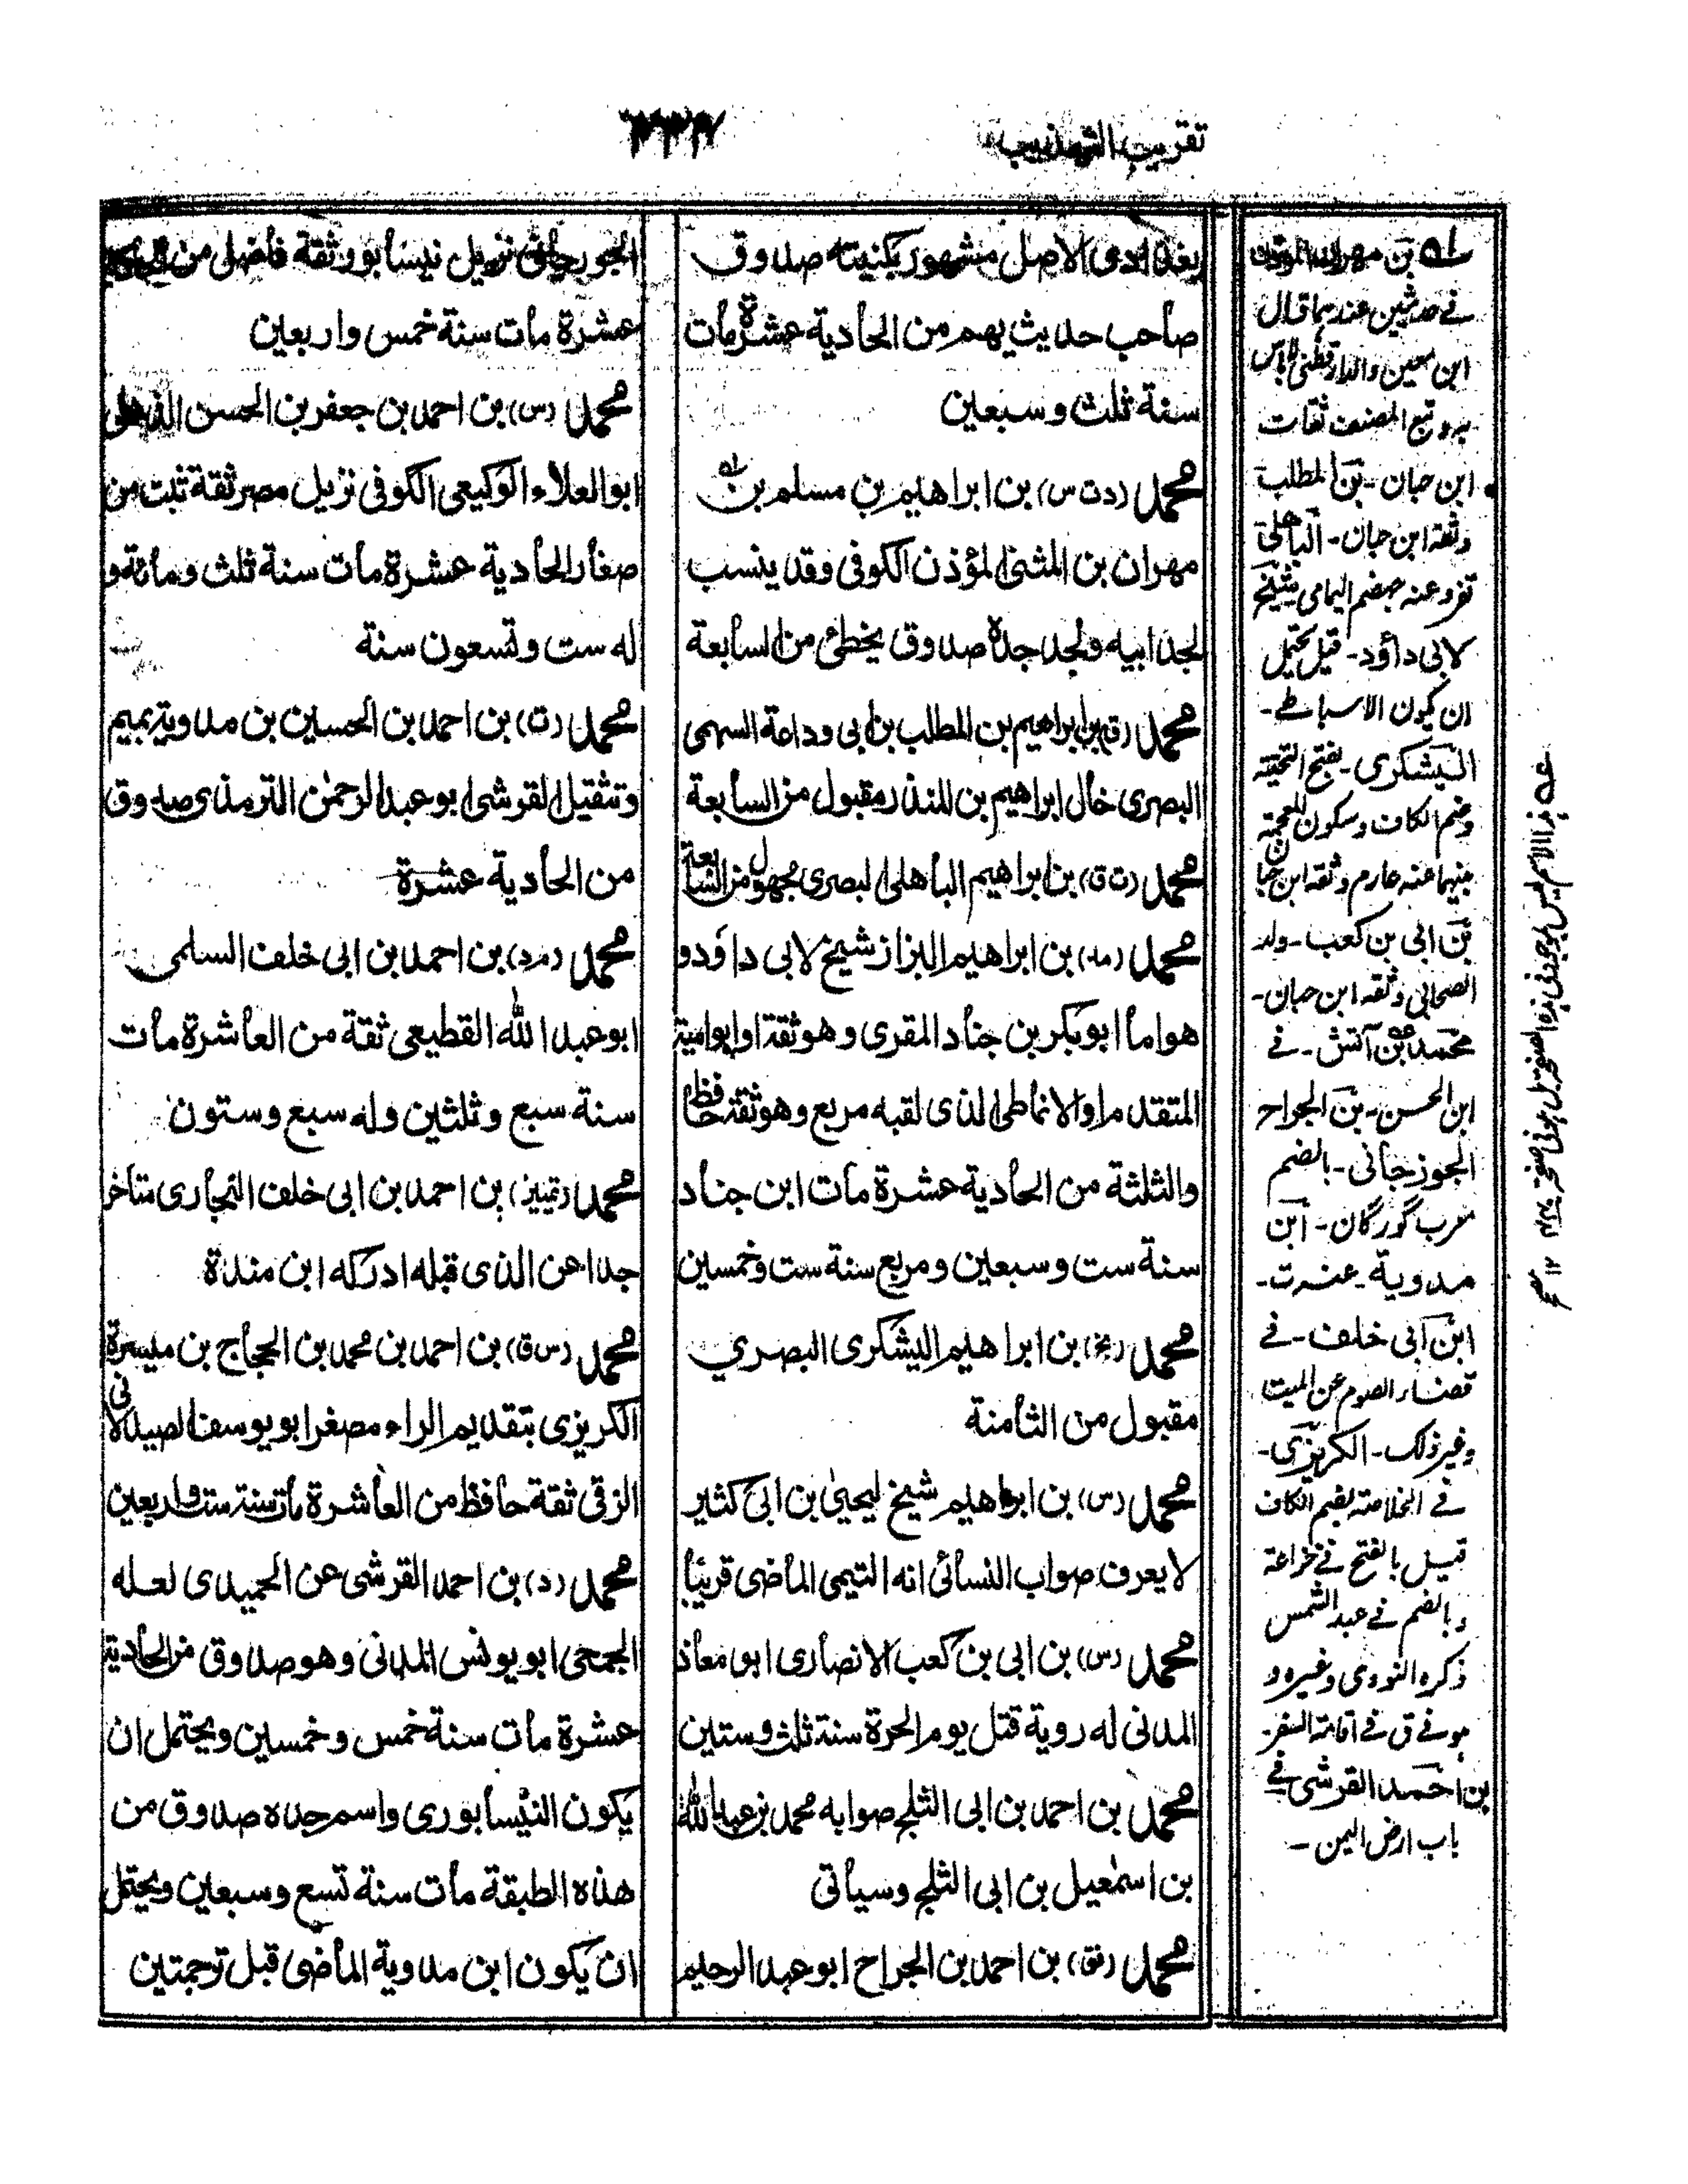 تقريب التهذيب
بغدادى الاصل مشهور بكنيته صدوق
صاحب حديث يهم من الحادية عشرة مات
سنة ثلث وسبعين
محمد (دت س) بن ابراهيم بن مسلم بن
مهران بن المثنى المؤذن الكوفى وقد ينسب
لجد ابيه ولجد جده صدوق يخطئ من السابعة
محمد (ق) بن ابراهيم بن المطلب بن ابى وداعة السهمى
البصرى خال ابراهيم بن المنذر مقبول من السابعة
محمد (ت ق) بن ابراهيم الباهلى البصرى مجهول من السابعة
محمد (مد) بن ابراهيم البزاز شيخ لابى داؤد و
هو اما ابو بكر بن جناد المقرى وهو ثقة او ابو امية
المتقدم او الانماطى الذى لقبه مربع وهو ثقة حافظ
والثلثة من الحادية عشرة مات ابن جناد
سنة ست وسبعين ومربع سنة ست وخمسين
محمد (بخ) بن ابراهيم اليشكرى البصري
مقبول من الثامنة
محمد (س) بن ابراهيم شيخ ليحيى بن ابى كثير
لا يعرف صواب النسائى انه التيمى الماضى قريبا
محمد (س) بن ابى بن كعب الانصارى ابو معاذ
المدنى له روية قتل يوم الحرة سنة ثلث وستين
محمد بن احمد بن ابى الثلج صوابه محمد بن عبد الله
بن اسمعيل بن ابى الثلج وسيأتى
محمد (تق) بن احمد بن الجراح ابو عبد الرحيم
الجورجانى نزيل نيسابور ثقة فاضل من الحادية
عشرة مات سنة خمس واربعين
محمد (س) بن احمد بن جعفر بن الحسن الذهلى
ابو العلاء الوكيعى الكوفى نزيل مصر ثقة ثبت من
صغار الحادية عشرة مات سنة ثلث ومائة و
له ست وتسعون سنة
محمد (ت) بن احمد بن الحسين بن مدوية بميم
وتثقيل القرشى ابو عبد الرحمن الترمذى صدوق
من الحادية عشرة
محمد (مد) بن احمد بن ابى خلف السلمى
ابو عبد الله القطيعى ثقة من العاشرة مات
سنة سبع وثلثين وله سبع وستون
محمد (تمييز) بن احمد بن ابى خلف البخارى متأخر
جدا عن الذى قبله ادركه ابن مندة
محمد (س ق) بن احمد بن محمد بن الحجاج بن ميسرة
الكريزى بتقديم الراء مصغرا ابو يوسف الصيدلانى
الرقى ثقة حافظ من العاشرة مات سنة ست واربعين
محمد (د) بن احمد القرشى عن الحميدى لعله
الجمحى ابو يونس المدنى وهو صدوق من الحادية
عشرة مات سنة خمس وخمسين ويحتمل ان
يكون النيسابورى واسم جده صدوق من
هذه الطبقة مات سنة تسع وسبعين ويحتمل
ان يكون ابن مدوية الماضى قبل ترجمتين
بن مهران
فى حديثين عندهما قال
ابن معين والدارقطنى لا بأس
به وتبع المصنف ثقات
ابن حبان - بن المطلب
وثقه ابن حبان - الباهلى
تفرد عنه جهضم اليمامى شيخ
لابى داؤد - قيل يحتمل
ان يكون الاسباطى -
اليشكرى - بفتح التحتية
وضم الكاف وسكون المعجمة
بينهما عنه عارم وثقه ابن حبان
بن ابى بن كعب - ولد
الصحابى وثقه ابن حبان -
محمد بن آتش - فى
ابن الحسن - بن الجراح
الجوزجانى - بالضم
معرب گورگان - ابن
مدوية - عنه ت -
ابن ابى خلف - فى
قضاء الصوم عن الميت
وغير ذلك - الكريزى -
فى الخلاصة بضم الكاف
قيل بالفتح فى خزاعة
وبالضم فى عبد الشمس
ذكره النووى وغيره و
هو فى ق فى اقامة السفر -
بن احمد القرشى فى
باب ارض اليمن -
هذا الاسم ليس بموجود فى هذه الصفحة بل هو فى صفحة